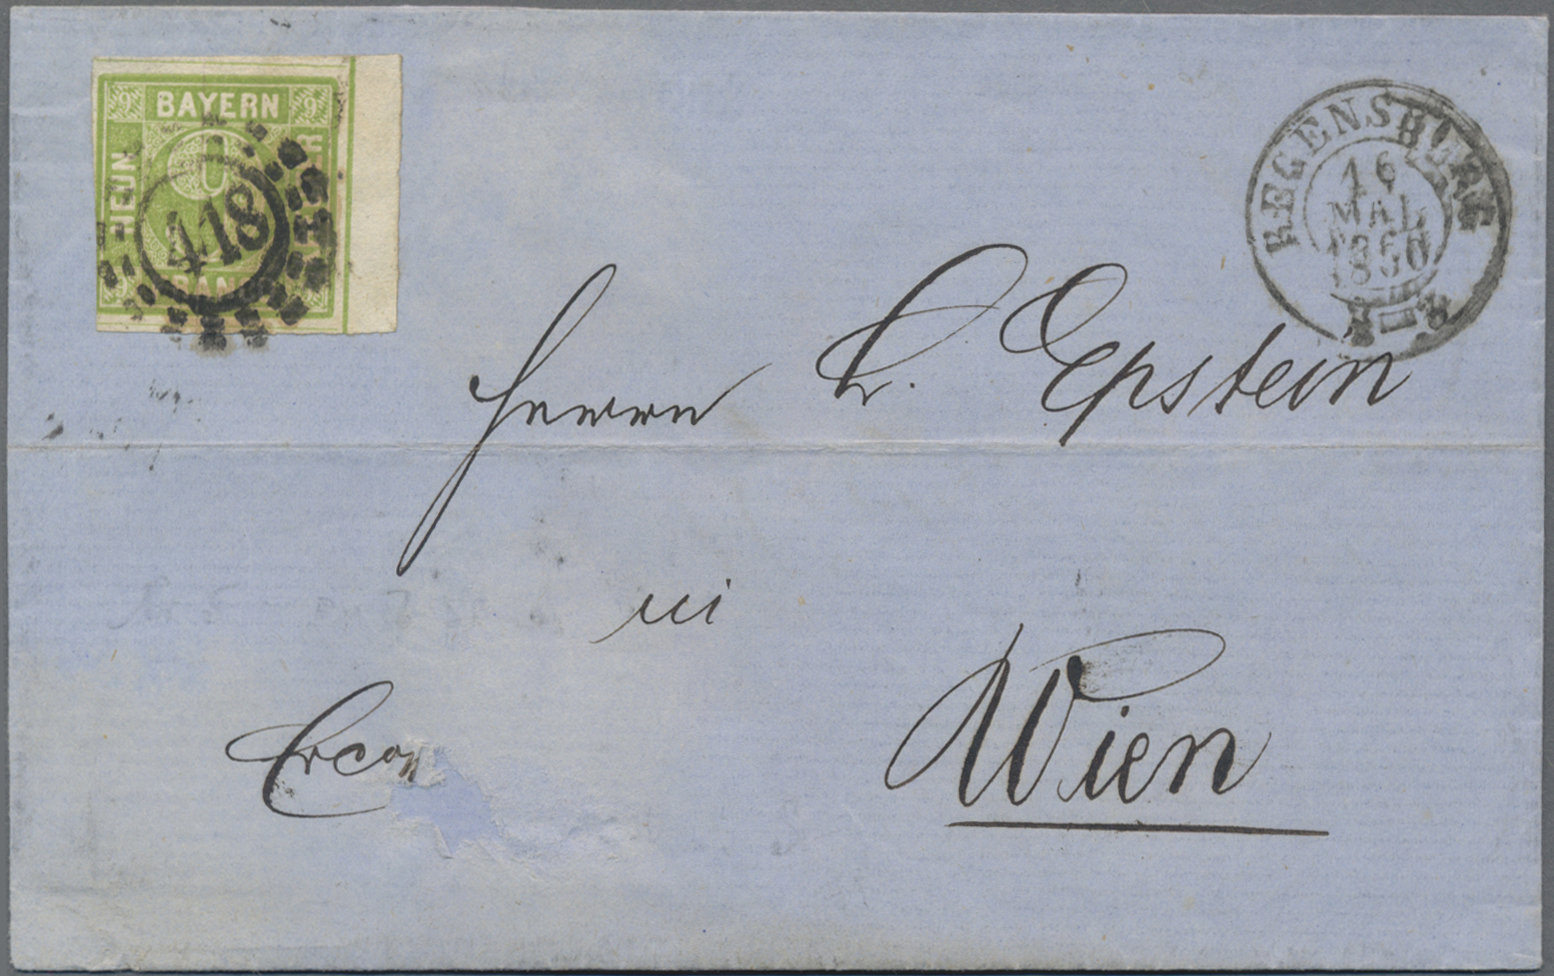 9 BAYERN 9
NEUN
9
418
REGENSBURG
16
MAI
1850
Herrn L. Epstein
in
Wien